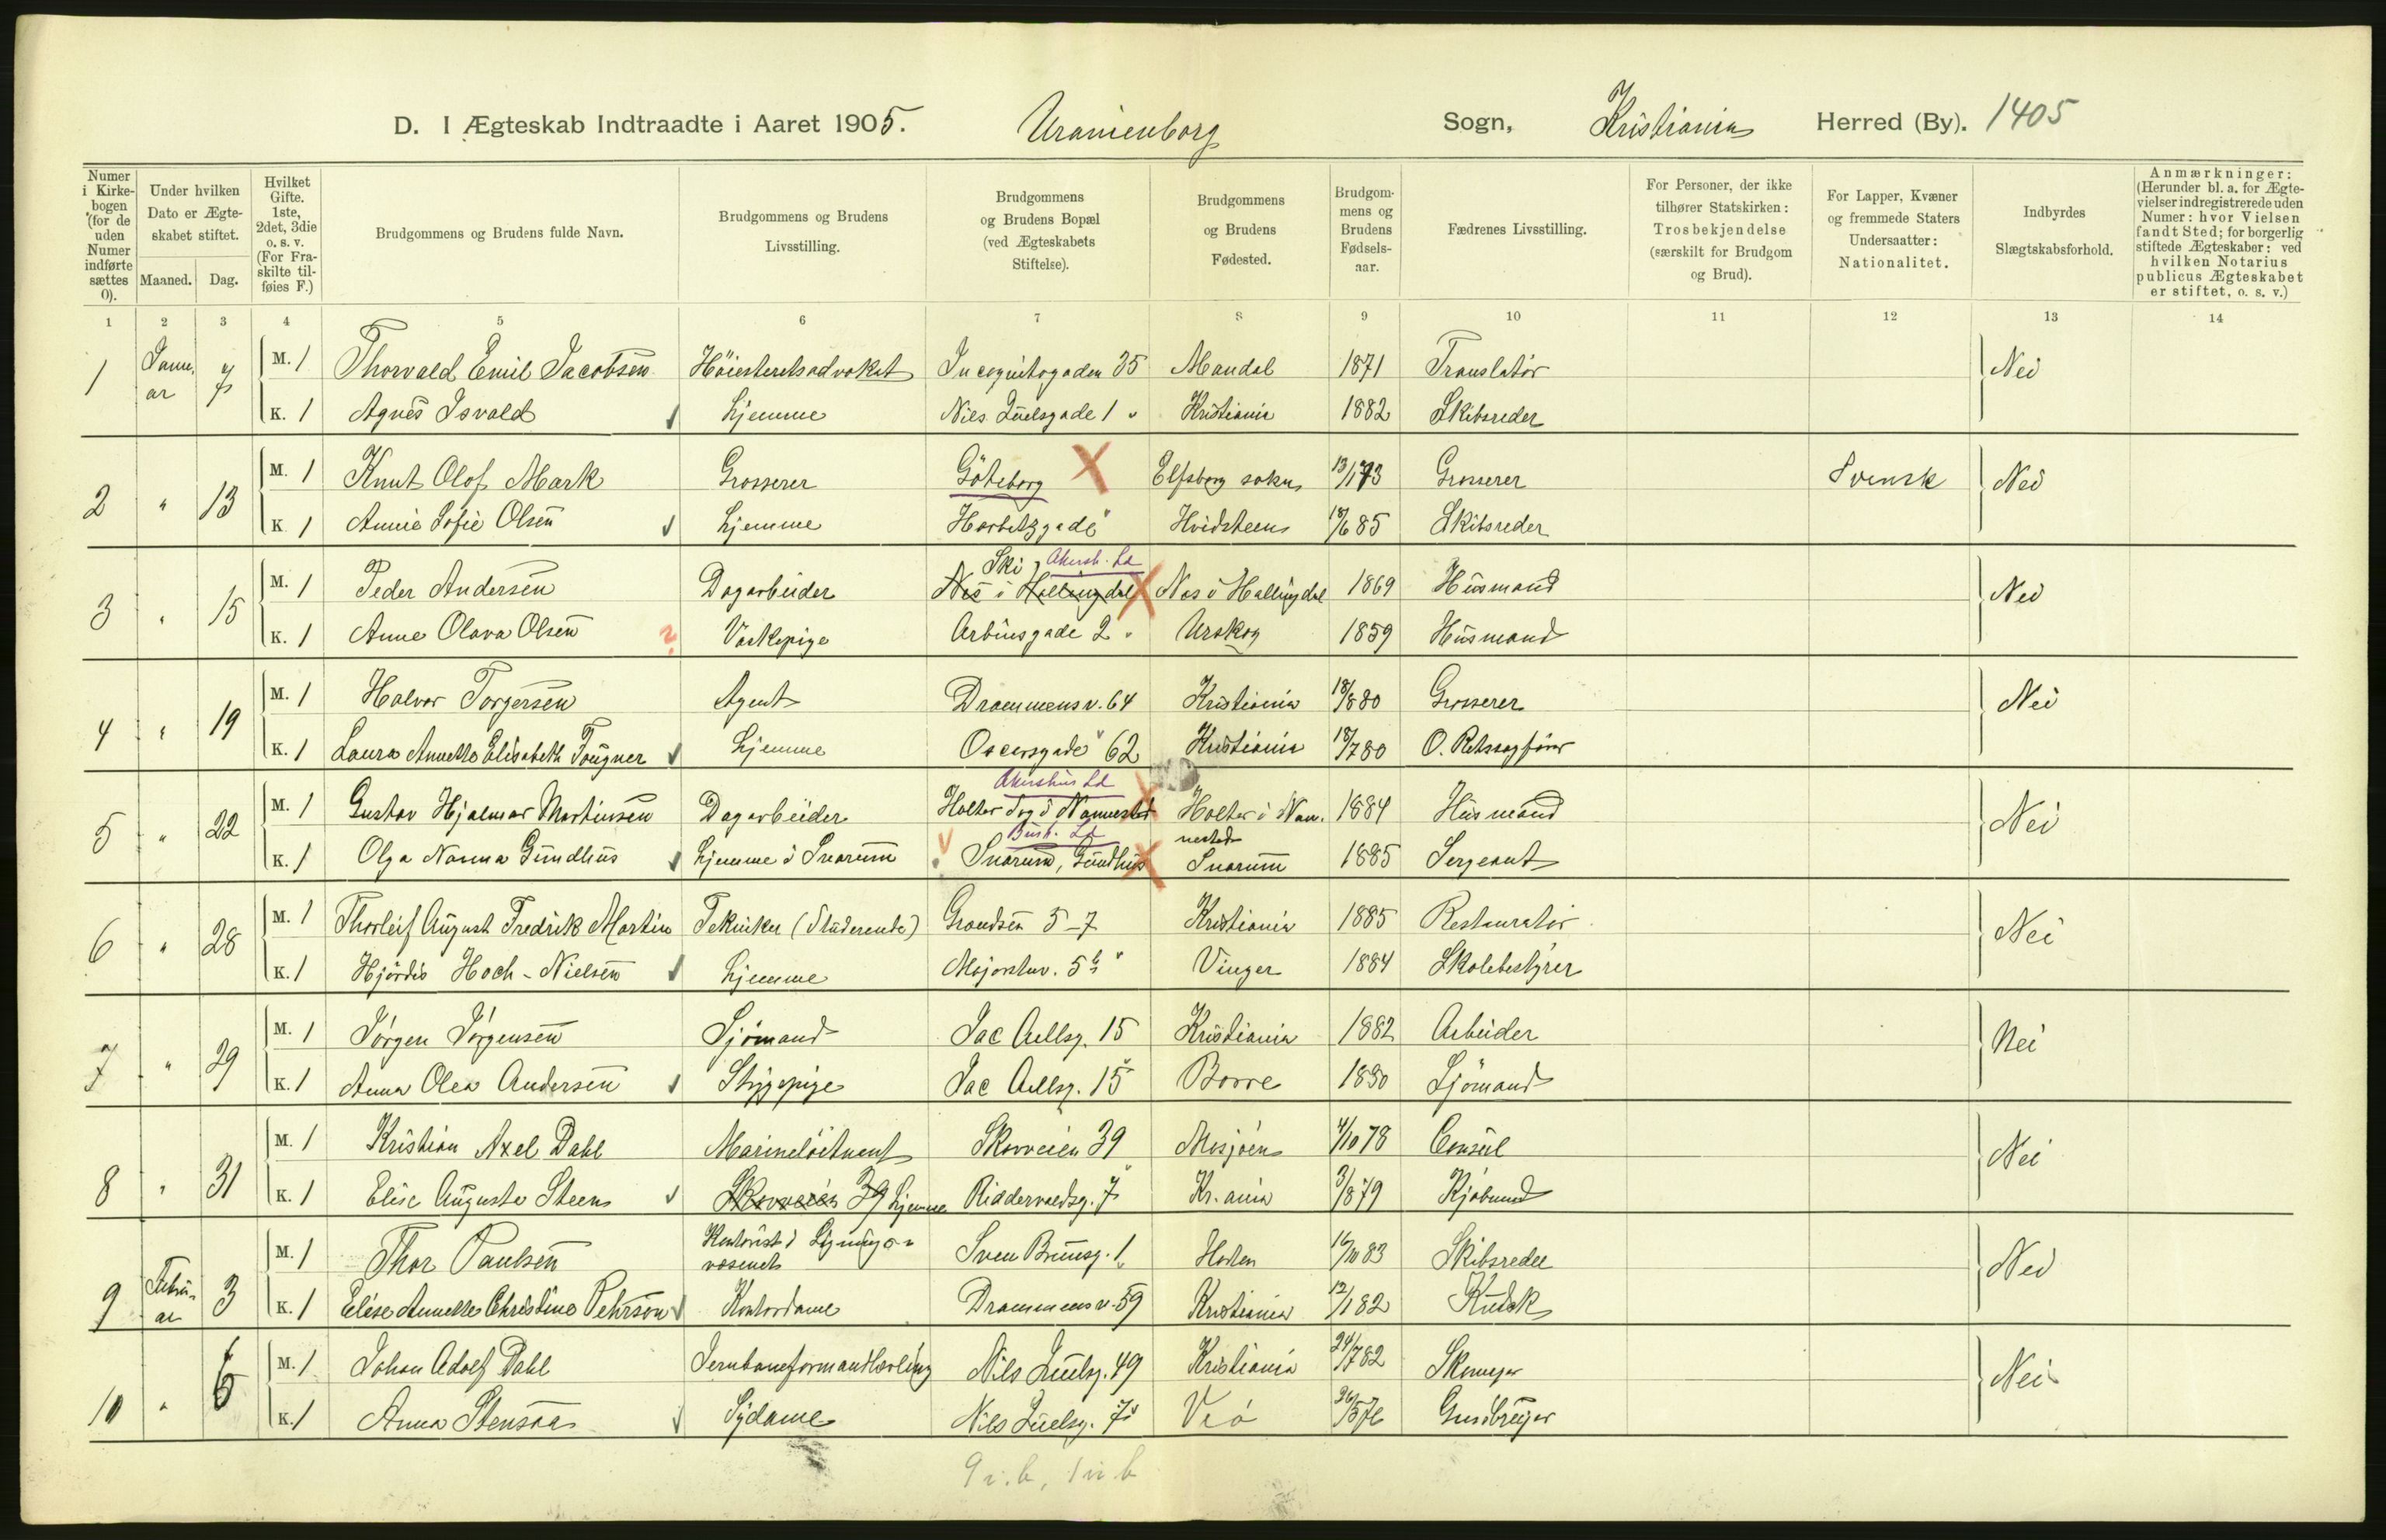 D. I Ægteskab Indtraadte i Aaret 1905. Uranienborg Sogn, Kristiania Herred (By). 1405
Numer i Kirkebogen (for de uden Numer indførte sættes 0).
Under hvilken Dato er Ægteskabet stiftet.
Maaned. Dag.
Hvilket Gifte. 1ste, 2det, 3die o. s. v. (For Fraskilte tilføies F.)
Brudgommens og Brudens fulde Navn.
Brudgommens og Brudens Livsstilling.
Brudgommens og Brudens Bopæl (ved Ægteskabets Stiftelse).
Brudgommens og Brudens Fødested.
Brudgommens og Brudens Fødselsaar.
Fædrenes Livsstilling.
For Personer, der ikke tilhører Statskirken: Trosbekjendelse (særskilt for Brudgom og Brud).
For Lapper, Kvæner og fremmede Staters Undersaatter: Nationalitet.
Indbyrdes Slægtskabsforhold.
Anmærkninger: (Herunder bl. a. for Ægtevielser indregistrerede uden Numer: hvor Vielsen fandt Sted; for borgerlig stiftede Ægteskaber: ved hvilken Notarius publicus Ægteskabet er stiftet, o. s. v.)
1 2 3 4 5 6 7 8 9 10 11 12 13 14
1 Januar 7 M. 1 Thorvald Emil Jacobsen Höiesteretsadvokat Incognitogaden 35 Mandal 1871 Translatör Nei
K. 1 Agnes Isvald hjemme Nils Juelsgade 1 Kristiania 1882 Skibsreder
2 " 13 M. 1 Knut Olof Mark Grosserer Göteborg Elfsborg sokn 13/1 73 Grosserer Svensk Nei
K 1 Annie Sofie Olsen hjemme Horbitzgade Hvidsteen 18/6 85 Skibsreder
Ski, Akersh. La
3 " 15 M. 1 Peder Andersen Dagarbeider Nes i Hallingdal Nes i Hallingdal 1869 Husmand Nei
K. 1 Anne Olava Olsen ? Vaskepige Arbinsgade 2 Urskog 1859 Husmand
4 " 19 M. 1 Halvor Torgersen Agent Drammensv. 64 Kristiania 18/8 80 Grosserer Nei
K. 1 Laura Annette Elisabeth Tougner hjemme Oscarsgade 62 Kristiania 18/7 80 O. Retssagförer
Akershus La
5 " 22 M. 1 Gustav Hjalmar Martinsen Dagarbeider Holter Sog i Nannestad Holter i Nannestad 1884 Husmand Nei
Busk. La
K. 1 Olga Nanna Gundhus hjemme i Snarum Snarum, Gundhus Snarum 1885 Sergeant
6 " 28 M. 1 Thorleif August Fredrik Martin Tekniker (Studerende) Grændsen 5-7 Kristiania 1885 Restauratör Nei
K. 1 Hjördis Hoch-Nielsen hjemme Majorstuv. 5b Vinger 1884 Skolebestyrer
7 " 29 M. 1 Jörgen Jörgensen Sjömand Jac Aallsg. 15 Kristiania 1882 Arbeider Nei
K. 1 Anna Olea Andersen Strygepige Jac Aallsg. 15 Borre 1880 Sjömand
8 " 31 M. 1 Kristian Axel Dahl Marinelöitnant Skovveien 39 Mosjöen 4/10 78 Consul Nei
K. 1 Elise Augusta Steen Skovveien 39 hjemme Riddervoldsg. 7 Kr.ania 3/8 79 Kjöbmand
9 Februar 3 M. 1 Thor Paulsen Kontorist i Ligningsvæsenet Sven Brunsg. 1 Horten 16/10 83 Skibsreder Nei
K. 1 Elise Annette Christine Pehrson Kontordame Drammensv. 59 Kristiania 12/1 82 Kudsk
10 " 6 M. 1 Johan Adolf Dahl Jernbaneformandlærling Nils Juelsg. 49 Kristiania 24/7 82 Skomager Nei
K. 1 Anna Stensaa Sydame Nils Juelsg. 7 Veö 26/5 76 Gaardbruger
9 i. b, 1 u b